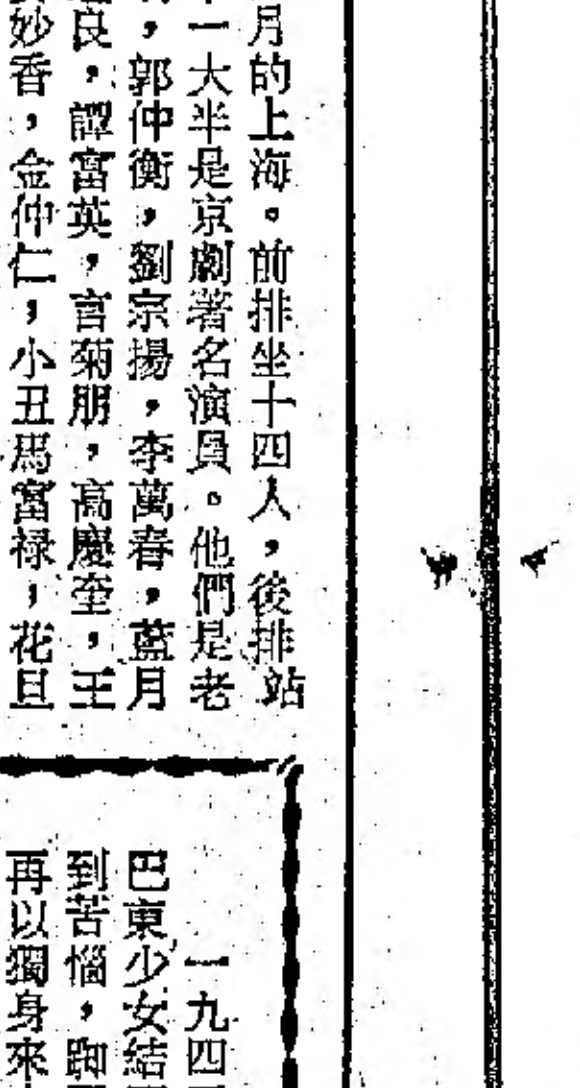 月的上海。前排坐十四人，後排站
一大半是京劇著名演員。他們是老
，郭仲衡，劉宗揚，李萬春，藍月
良，譚富英，言菊朋，高慶奎，王
妙香，金仲仁，小丑馬富禄，花旦
一九四
巴東少女結
到苦惱，
再以獨身來